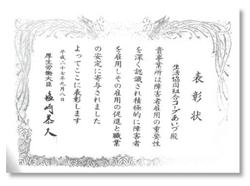 表彰状
生活協同組合コープあいづ殿
貴事業所は障害者雇用の重要性
を深く認識され積極的に障害者
を雇用しその雇用の促進と職業
の安定に寄与されました
よってここに表彰します
平成二十七年九月八日
厚生労働大臣 塩崎恭久